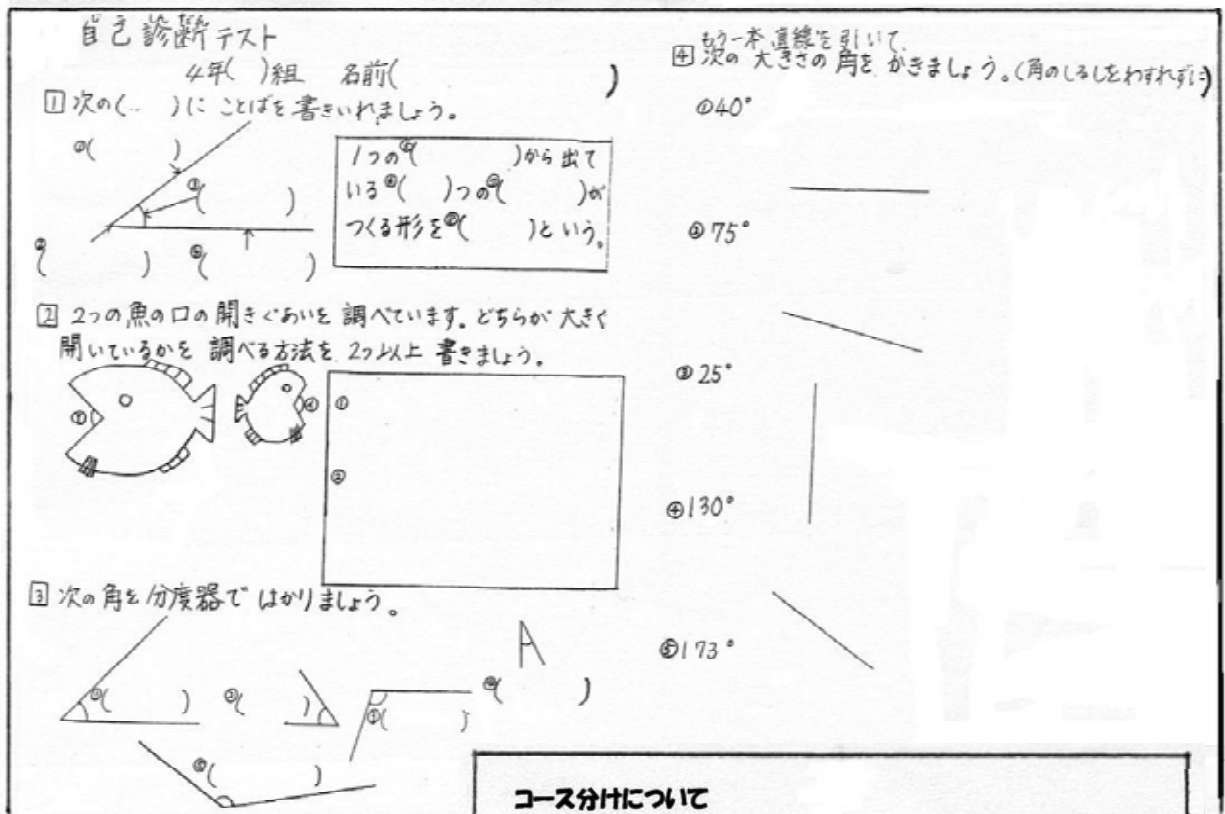 自己診断テスト
4年( )組 名前( )
1 次の( )に ことばを書きいれましょう。
( )
( )
( ) ( )
1つの( )から出て
いる( )つの( )が
つくる形を( )という。
2 2つの魚の口の開きぐあいを 調べています。どちらが 大きく
開いているかを 調べる方法を 2つ以上 書きましょう。
①
②
3 次の角を分度器で はかりましょう。
①( ) ②( ) ③( ) ④( )
⑤( )
4 もう一本 直線を引いて、
次の 大きさの 角を かきましょう。(角のしるしをわすれずに)
①40°
②75°
③25°
④130°
⑤173°
コース分けについて